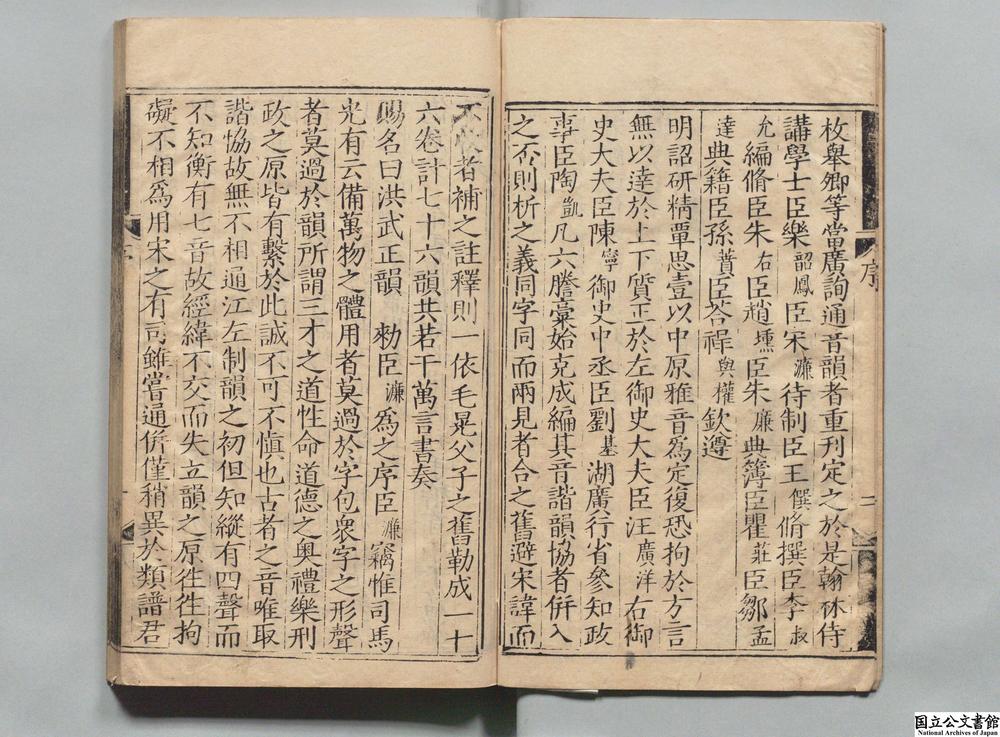 枚舉卿等當廣詢通音韻者重刊定之於是翰林侍
講學士臣樂韶鳳臣宋濂待制臣王僎脩撰臣李叔
允編脩臣朱右臣趙壎臣朱廉典簿臣瞿莊臣鄒孟
達典籍臣孫蕡臣荅祿與權欽遵
明詔研精覃思壹以中原雅音爲定復恐拘於方言
無以達於上下質正於左御史大夫臣汪廣洋右御
史大夫臣陳寧御史中丞臣劉基湖廣行省參知政
事臣陶凱凡六謄藁始克成編其音諧韻協者併入
之否則析之義同字同而兩見者合之舊避宋諱而
序
二
不收者補之註釋則一依毛晃父子之舊勒成一十
六卷計七十六韻共若干萬言書奏
賜名曰洪武正韻 勑臣濂爲之序臣濂竊惟司馬
光有云備萬物之體用者莫過於字包衆字之形聲
者莫過於韻所謂三才之道性命道德之奧禮樂刑
政之原皆有繫於此誠不可不愼也古者之音唯取
諧恊故無不相通江左制韻之初但知縱有四聲而
不知衡有七音故經緯不交而失立韻之原徃徃拘
礙不相爲用宋之有司雖嘗通併僅稍異於類譜君
国立公文書館
National Archives of Japan